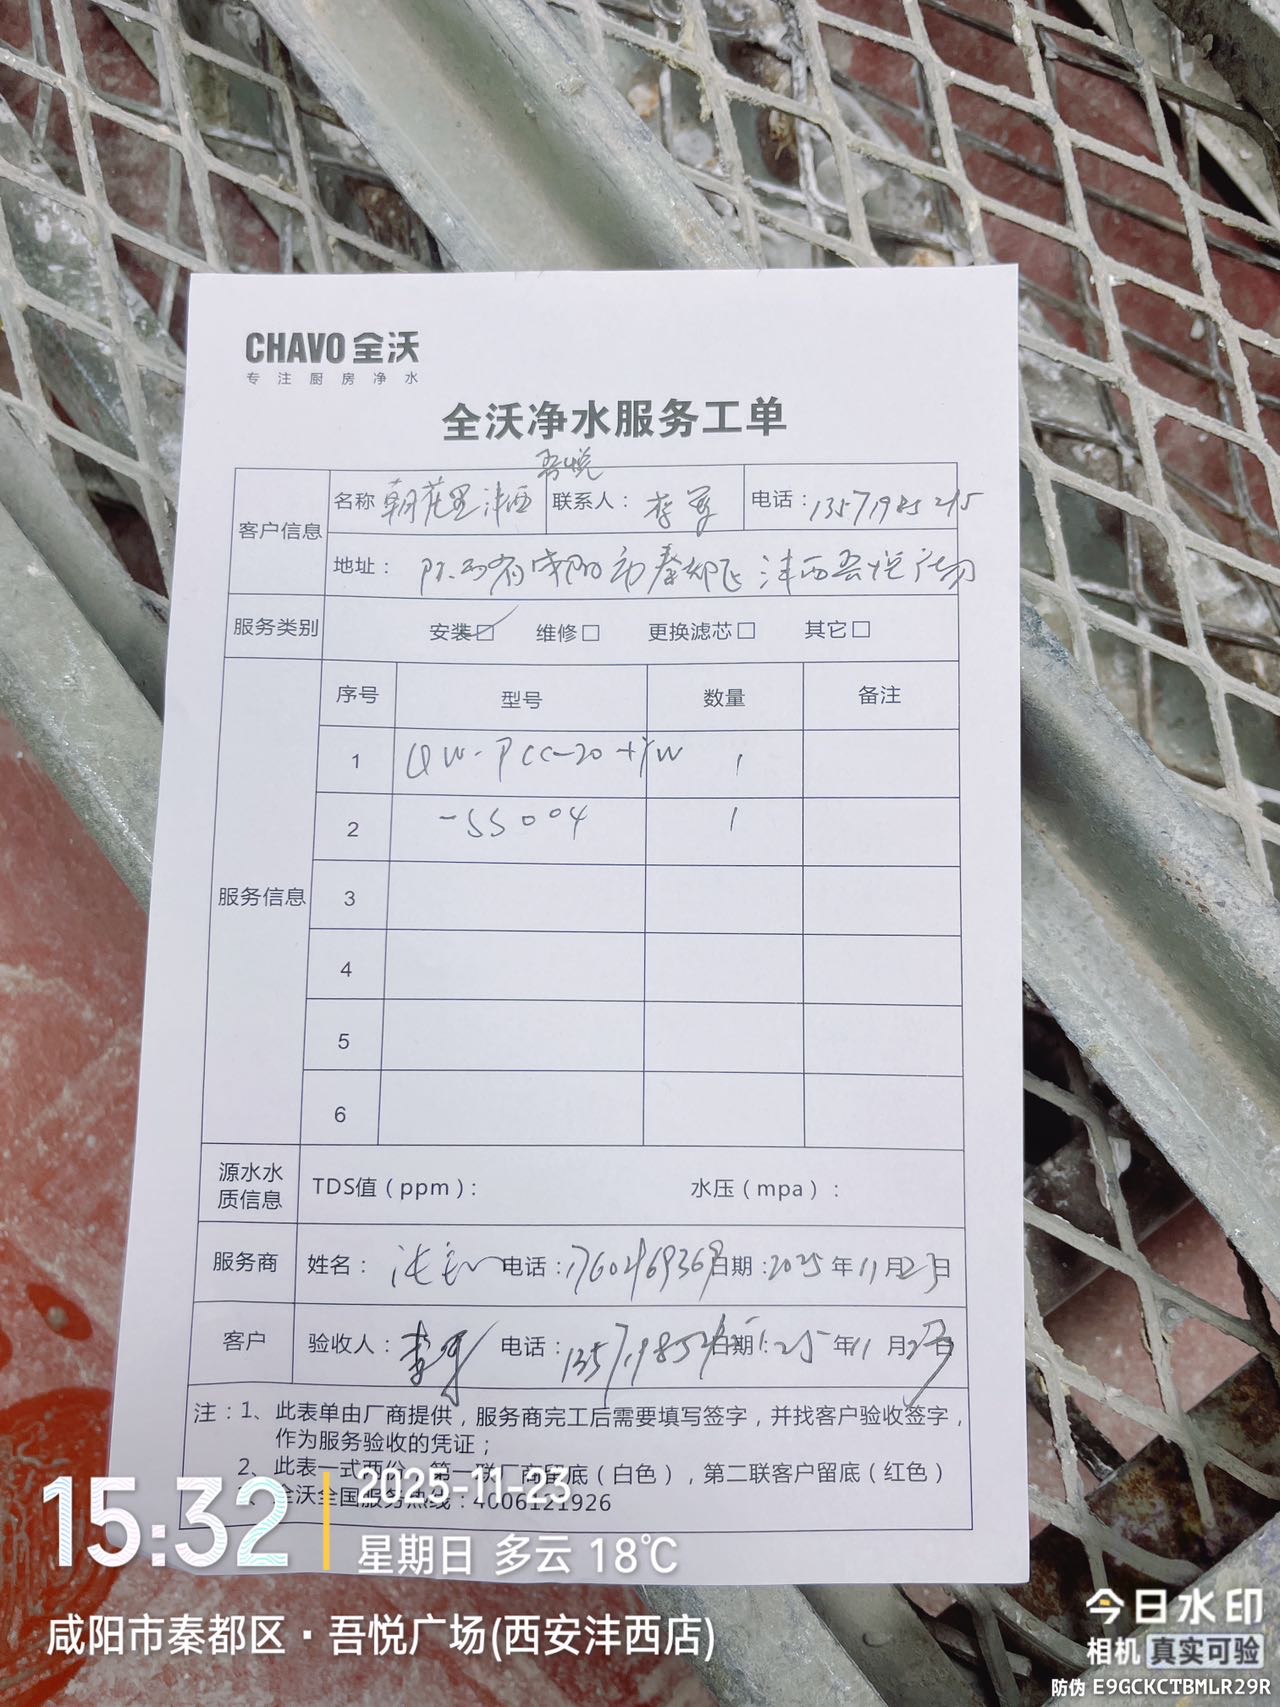 CHAVO 全沃
专注厨房净水
全沃净水服务工单
吾悦
客户信息 名称 朝花里沣西 联系人： 李 电话：13571985215
地址： 陕西省咸阳市秦都区沣西吾悦广场
服务类别 安装☑ 维修□ 更换滤芯□ 其它□
服务信息 序号 型号 数量 备注
1 QW-PCC-20+YW 1
2 -SS004 1
3
4
5
6
源水水质信息 TDS值（ppm）： 水压（mpa）：
服务商 姓名： 电话：17602969369 日期：2025年11月23日
客户 验收人：李 电话：13571985215 日期：25年11月23日
注：1、此表单由厂商提供，服务商完工后需要填写签字，并找客户验收签字，
作为服务验收的凭证；
2、此表一式两份，第一联厂商留底（白色），第二联客户留底（红色）
全沃全国服务热线：4006121926
15:32
2025-11-23
星期日 多云 18℃
咸阳市秦都区·吾悦广场(西安沣西店)
今日水印
相机 真实可验
防伪 E9GCKCTBMLR29R